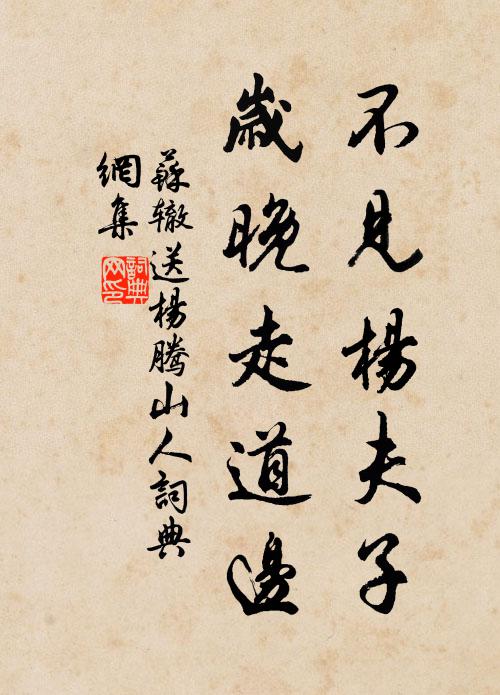 不見楊夫子
歲晚走道邊
蘇轍送楊騰山人詞典
網集
詞典網印